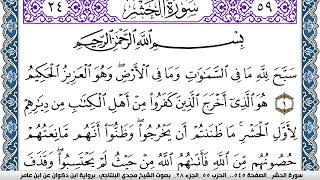 ٢٤ سُورَةُ الْحَشْرِ ٥٩
بِسْمِ اللَّهِ الرَّحْمَٰنِ الرَّحِيمِ
سَبَّحَ لِلَّهِ مَا فِي السَّمَٰوَٰتِ وَمَا فِي الْأَرْضِ وَهُوَ الْعَزِيزُ الْحَكِيمُ
١ هُوَ الَّذِي أَخْرَجَ الَّذِينَ كَفَرُوا مِنْ أَهْلِ الْكِتَٰبِ مِن دِيَٰرِهِمْ
لِأَوَّلِ الْحَشْرِ مَا ظَنَنتُمْ أَن يَخْرُجُوا وَظَنُّوا أَنَّهُم مَّانِعَتُهُمْ
حُصُونُهُم مِّنَ اللَّهِ فَأَتَىٰهُمُ اللَّهُ مِنْ حَيْثُ لَمْ يَحْتَسِبُوا وَقَذَفَ
سورة الحشر _ الصفحة ٥٤٥ _ الحزب ٥٥ _ الجزء ٢٨ _ بصوت الشيخ مجدي البلتاجي_ برواية ابن ذكوان عن ابن عامر